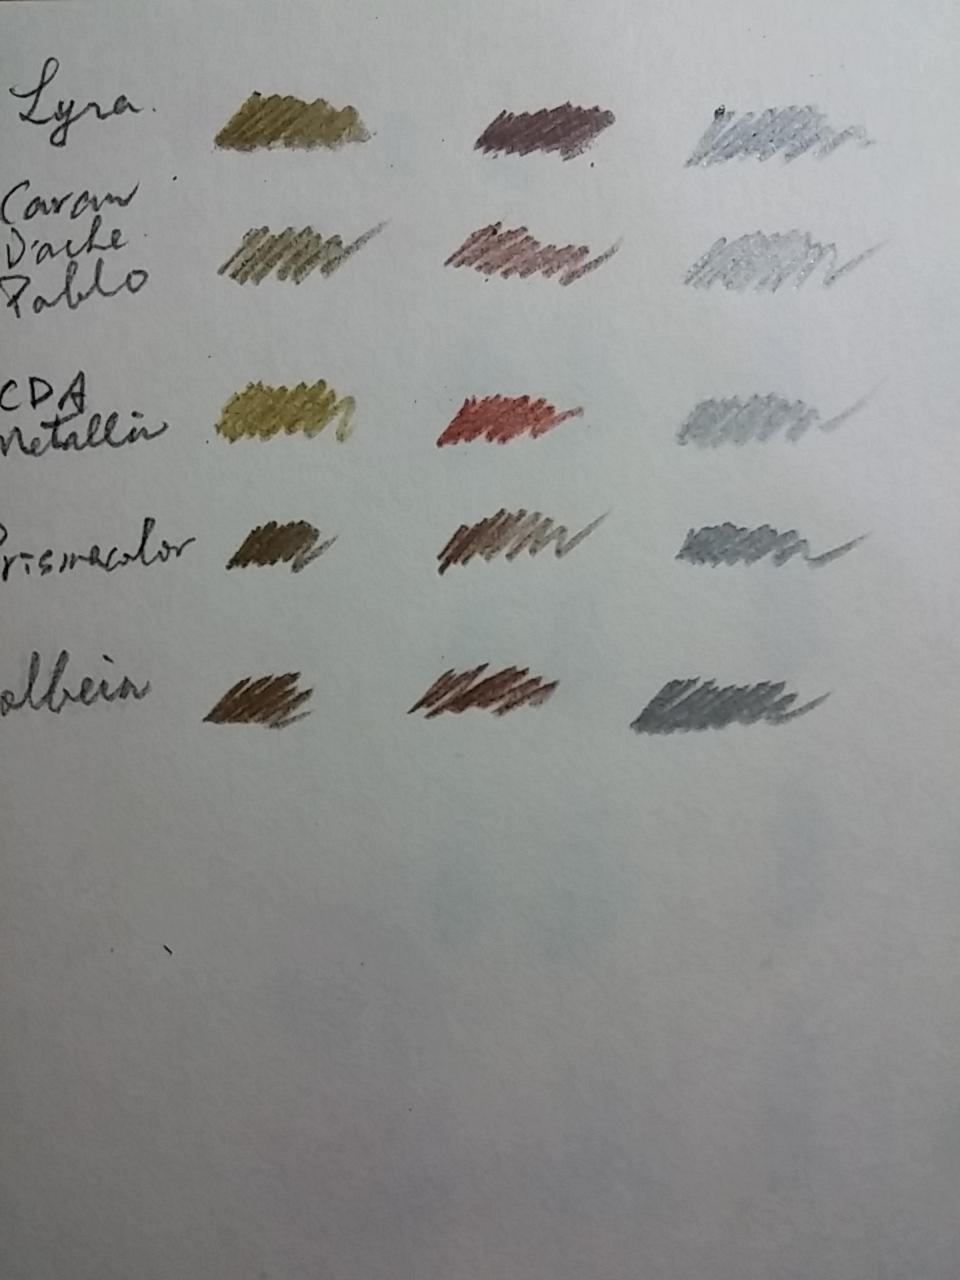 Lyra.
Caran
D'ache
Pablo
CDA
Metallic
Prismacolor
olbein